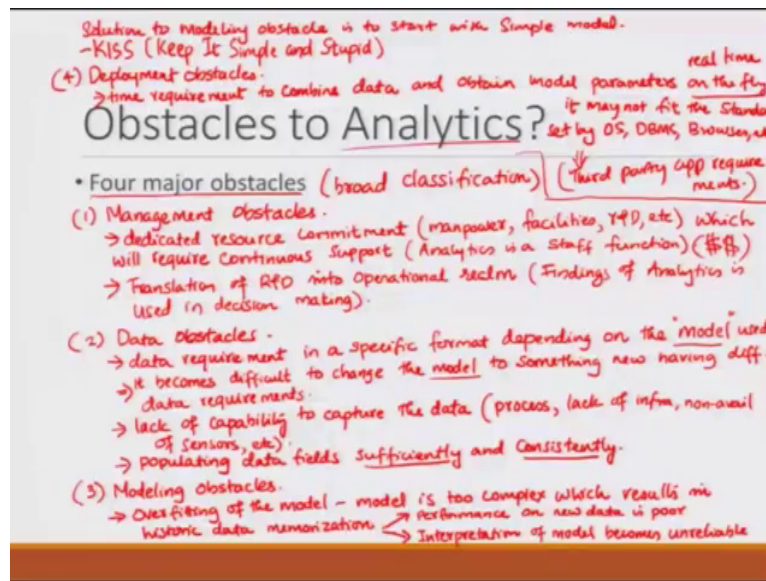 Solution to modeling obstacle is to start with Simple model.
-KISS (Keep It Simple and Stupid)
(4) Deployment obstacles.
real time
→ time requirement to combine data and obtain model parameters on the fly
it may not fit the Standa
set by OS, DBMS, Browser,
Obstacles to Analytics?
(Third party app require
ments.)
• Four major obstacles (broad classification)
(1) Management obstacles.
→ dedicated resource commitment (manpower, facilities, R&D, etc) which
will require continuous support (Analytics is a staff function) ($$)
→ Translation of R&D into operational realm (Findings of Analytics is
used in decision making).
(2) Data obstacles.
→ data requirement in a specific format depending on the "model" used
→ it becomes difficult to change the model to something new having diff.
data requirements.
→ lack of capability to capture the data (process, lack of infra, non-avail
of sensors, etc).
→ populating data fields sufficiently and consistently.
(3) Modeling obstacles.
→ Overfitting of the model - model is too complex which results in
historic data memorization → performance on new data is poor
→ Interpretation of model becomes unreliable